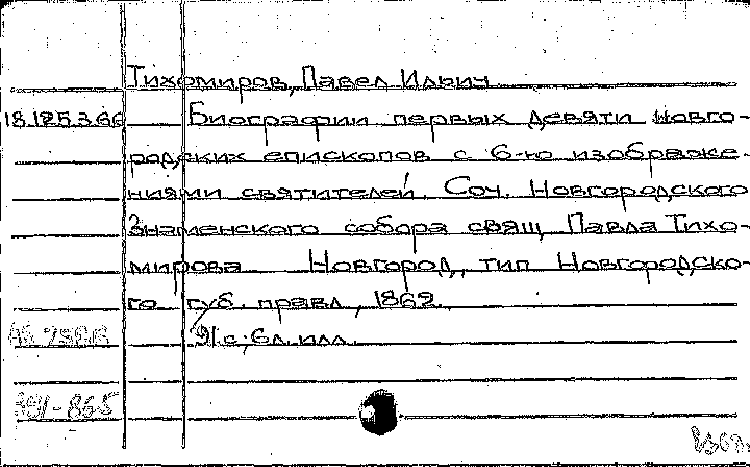 Тихомиров, Павел Ильич
18.125.3.66 Биографии первых девяти Новго-
родских епископов с 6-ю изображе-
ниями святителей. Соч. Новгородского
Знаменского собора свящ. Павла Тихо-
мирова Новгород, тип Новгородско-
го губ. правл, 1862.
91 с; 6л. илл.